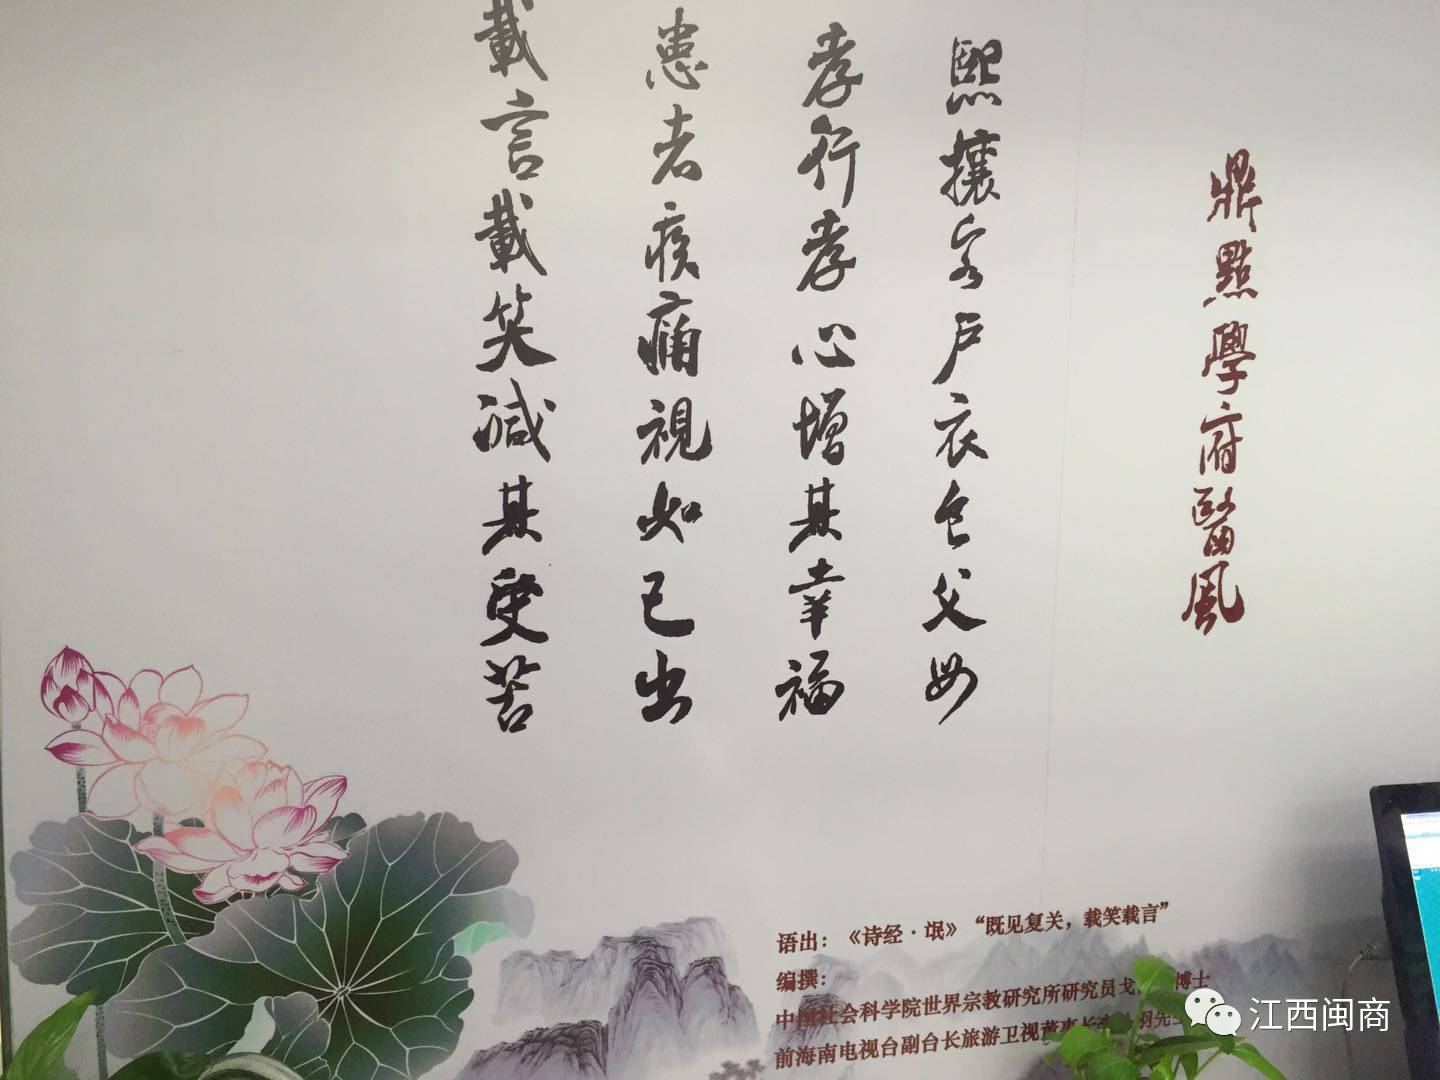 鼎點學府醫風
熙攘客戶衣食父母
孝行孝心增其幸福
患者疾痛視如己出
載言載笑減其受苦
语出：《诗经·氓》“既见复关，载笑载言”
编撰：
中国社会科学院世界宗教研究所研究员戈 博士
前海南电视台副台长旅游卫视董事长
江西闽商